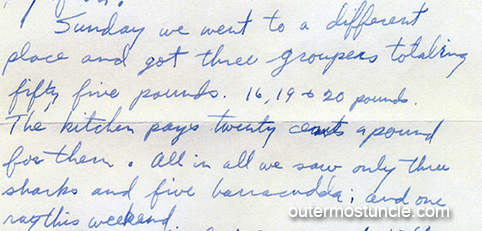 Sunday we went to a different
place and got three groupers totaling
fifty five pounds. 16, 19 & 20 pounds.
The kitchen pays twenty cents a pound
for them. All in all we saw only three
sharks and five barracudda; and one
ray this weekend.
outermostuncle.com